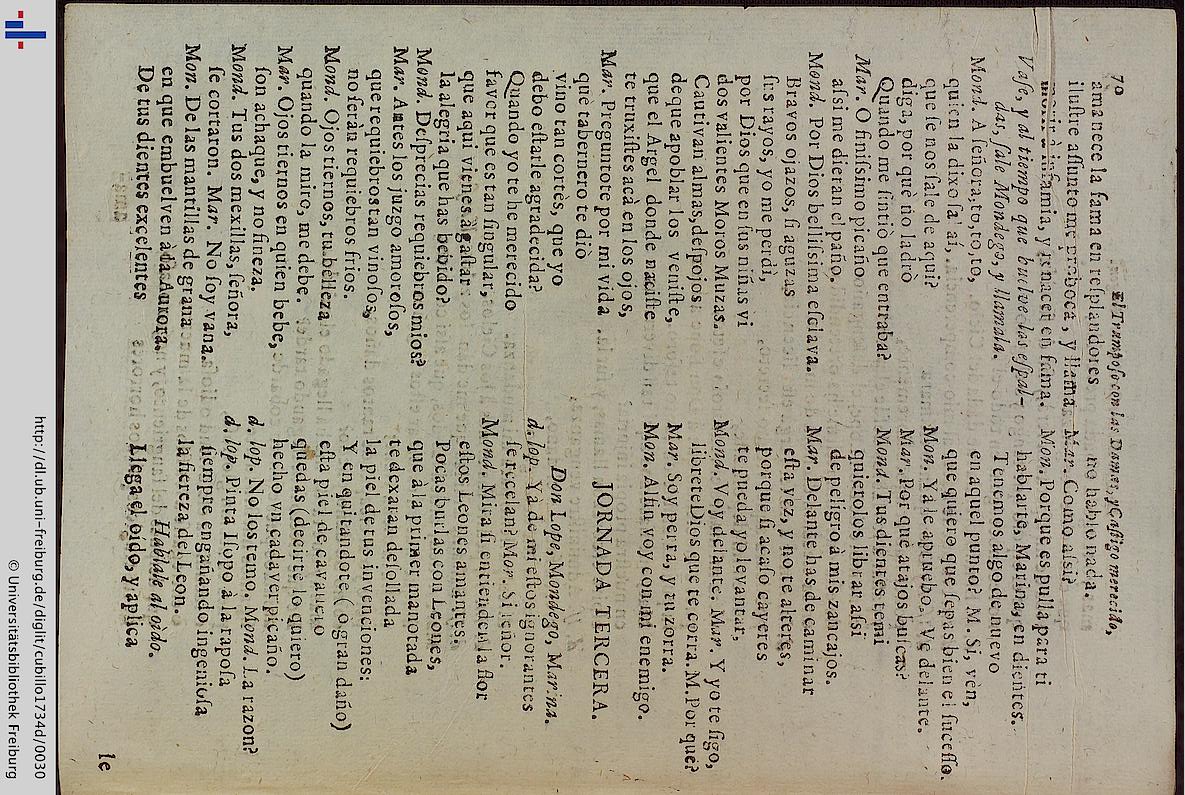 70 El Tramposo con las Damas, y Castigo merecido,
amanece la fama en resplandores
ilustre assunto me probocá, y llama
morir à infamia, y renacer en fama.
Vase, y al tiempo que buelve las espal-
das, sale Mondego, y llamala.
Mond. A señora, to, to, to,
quien la dixo sa'aí,
que se nos sale de aqui?
diga, por què no ladrò
Quando me sintiò que entraba?
Mar. O finissimo picano
assi me dieran el paño.
Mond. Por Dios bellissima esclava.
Bravos ojazos, si aguzas
sus rayos, yo me perdì,
por Dios que en sus niñas vi
dos valientes Moros Muzas.
Cautivan almas, despojos
de que apoblar los veniste,
que el Argel donde naciste
te truxistes acà en los ojos,
Mar. Preguntote por mi vida
què tabernero te diò
vino tan cortès, que yo
debo estarle agradecida?
Quando yo te he merecido
favor que es tan singular,
que aqui vienes à gastar
la alegria que has bebido?
Mond. Desprecias requiebros mios?
Mar. Antes los juzgo amorosos,
que requiebros tan vinosos,
no seràn requiebros frios.
Mond. Ojos tiernos, tu belleza
quando la miro, me debe.
Mar. Ojos tiernos en quien bebe,
son achaque, y no fineza.
Mond. Tus dos mexillas, señora,
se cortaron. Mar. No soy vana.
Mon. De las mantillas de grana
en que embuelven à la Aurora.
De tus dientes excelentes
no hablo nada.
Mar. Como assi?
Mon. Porque es pulla para ti
hablarte, Marina, en dientes.
Tenemos algo de nuevo
en aquel punto? M. Si, vèn,
que quiero que sepas bien el sucesso.
Mon. Yà le apruebo. Ve delante.
Mar. Por què atajos buscas?
Mond. Tus dientes temi
querolos librar assi
de peligro à mis zancajos.
Mar. Delante has de caminar
esta vez, y no te alteres,
porque si acaso cayeres
te pueda yo levantar,
Mond. Voy delante. Mar. Y yo te sigo,
librete Dios que te corra. M. Por què?
Mar. Soy perra, y tu zorra.
Mon. Alfin voy con mi enemigo.
JORNADA TERCERA.
Don Lope, Mondego, Marina.
d. lop. Yà de mi estos ignorantes
se recelan? Mar. Si señor.
Mond. Mira si entienden la flor
estos Leones amantes:
Pocas burlas con Leones,
que à la primer manotada
te dexaràn desollada
la piel de tus invenciones:
Y en quitandote (o gran daño)
esta piel de cavallero
quedas (decirte lo quiero)
hecho vn cadaver picaño.
d. lop. No los temo. Mond. La razon?
d. lop. Pinta Isopo à la raposa
siempre engañando ingeniosa
la fiereza del Leon.
Hablale al oido.
Llega el oido, y aplica
le
http://dl.ub.uni-freiburg.de/diglit/cubillo1734d/0030
© Universitätsbibliothek Freiburg